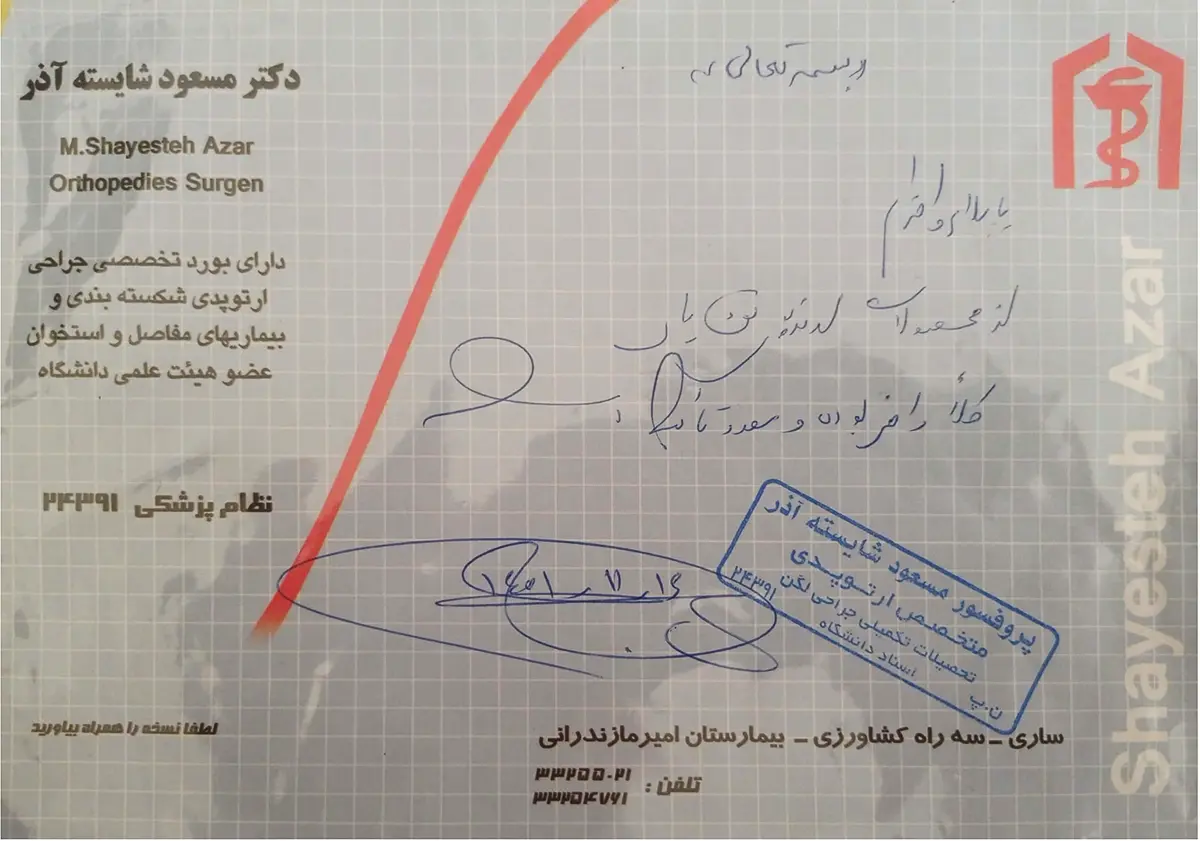 بسمه تعالی
با سلام و احترام
از محصولات
کلاً راضی بوده و مورد تأیید
۱۴۰۱/۷/۱۶
دکتر مسعود شایسته آذر
M.Shayesteh Azar
Orthopedies Surgen
دارای بورد تخصصی جراحی
ارتوپدی شکسته بندی و
بیماریهای مفاصل و استخوان
عضو هیئت علمی دانشگاه
نظام پزشکی ۲۴۳۹۱
لطفا نسخه را همراه بیاورید
پروفسور مسعود شایسته آذر
متخصص ارتوپدی
تحصیلات تکمیلی جراحی لگن
استاد دانشگاه
ن.پ ۲۴۳۹۱
ساری - سه راه کشاورزی - بیمارستان امیر مازندرانی
تلفن : ۳۳۲۵۵۰۲۱
۳۳۲۵۴۷۶۱
Shayesteh Azar